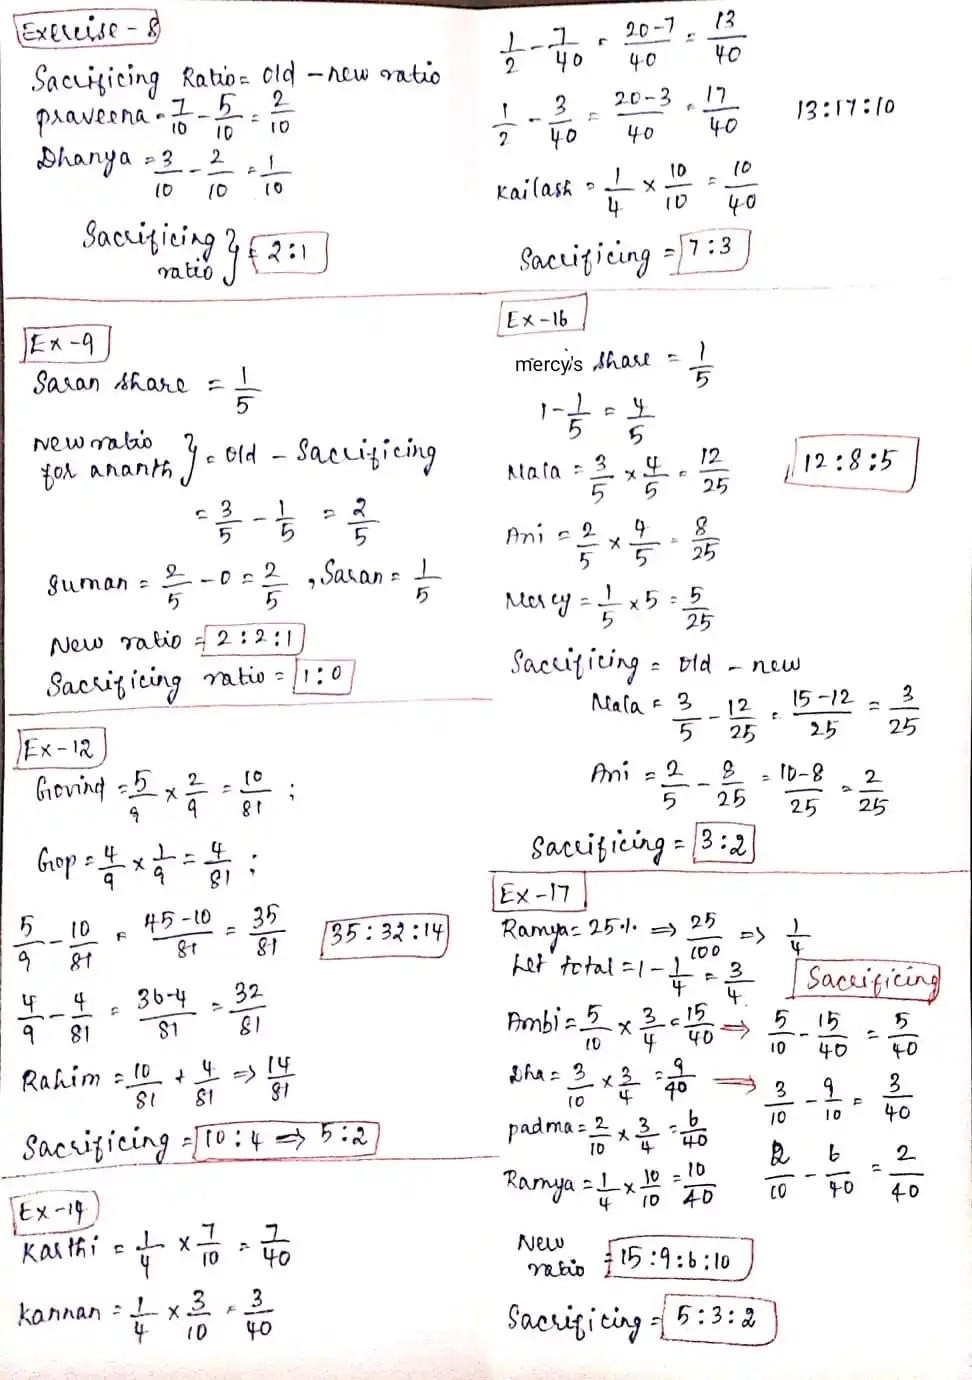 Exercise - 8
Sacrificing Ratio = Old - new ratio
praveena = 7/10 - 5/10 = 2/10
Dhanya = 3/10 - 2/10 = 1/10
Sacrificing ratio } = 2:1
Ex - 9
Saran share = 1/5
New ratio for ananth } = Old - Sacrificing
= 3/5 - 1/5 = 2/5
Suman = 2/5 - 0 = 2/5 , Saran = 1/5
New ratio = 2:2:1
Sacrificing ratio = 1:0
Ex - 12
Govind = 5/9 × 2/9 = 10/81 ;
Gop = 4/9 × 1/9 = 4/81 ;
5/9 - 10/81 = 45-10/81 = 35/81 35:32:14
4/9 - 4/81 = 36-4/81 = 32/81
Rahim = 10/81 + 4/81 ⇒ 14/81
Sacrificing = 10:4 ⇒ 5:2
Ex - 14
Karthi = 1/4 × 7/10 = 7/40
Kannan = 1/4 × 3/10 = 3/40
1/2 - 7/40 = 20-7/40 = 13/40
1/2 - 3/40 = 20-3/40 = 17/40 13:17:10
Kailash = 1/4 × 10/10 = 10/40
Sacrificing = 7:3
Ex - 16
mercy's share = 1/5
1 - 1/5 = 4/5
Mala = 3/5 × 4/5 = 12/25 12:8:5
Ani = 2/5 × 4/5 = 8/25
Mercy = 1/5 × 5 = 5/25
Sacrificing = Old - new
Mala = 3/5 - 12/25 = 15-12/25 = 3/25
Ani = 2/5 - 8/25 = 10-8/25 = 2/25
Sacrificing = 3:2
Ex - 17
Ramya = 25% ⇒ 25/100 ⇒ 1/4
Let total = 1 - 1/4 = 3/4
Sacrificing
Ambi = 5/10 × 3/4 = 15/40 ⇒ 5/10 - 15/40 = 5/40
Dha = 3/10 × 3/4 = 9/40 ⇒ 3/10 - 9/10 = 3/40
padma = 2/10 × 3/4 = 6/40 2/10 - 6/40 = 2/40
Ramya = 1/4 × 10/10 = 10/40
New ratio = 15:9:6:10
Sacrificing = 5:3:2